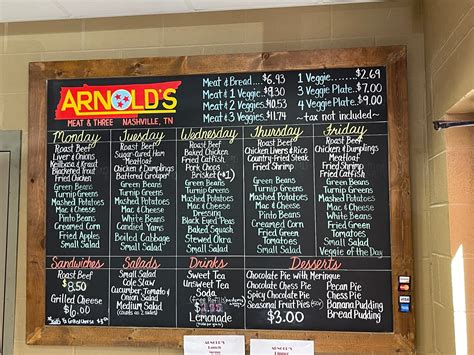 ARNOLD'S
MEAT & THREE NASHVILLE, TN
Meat & Bread $6.93
Meat & 1 Veggie $9.30
Meat & 2 Veggies $10.53
Meat & 3 Veggies $11.74
1 Veggie $2.69
3 Veggie Plate $7.00
4 Veggie Plate $9.00
~ tax not included ~
Monday
Roast Beef
Liver & Onions
Blackened Trout
Fried Chicken
Green Beans
Turnip Greens
Mashed Potatoes
Mac & Cheese
Pinto Beans
Creamed Corn
Fried Apples
Small Salad
Tuesday
Roast Beef
Sugar-cured Ham
Meatloaf
Chicken & Dumplings
Battered Grouper
Green Beans
Turnip Greens
Mashed Potatoes
Mac & Cheese
White Beans
Candied Yams
Boiled Cabbage
Small Salad
Wednesday
Roast Beef
Baked Chicken
Fried Catfish
Pork Chops
Brisket (+$1)
Green Beans
Turnip Greens
Mashed Potatoes
Mac & Cheese
Dressing
Black Eyed Peas
Baked Squash
Stewed Okra
Small Salad
Thursday
Roast Beef
Chicken Livers & Rice
Country-Fried Steak
Fried Shrimp
Green Beans
Turnip Greens
Mashed Potatoes
Mac & Cheese
Pinto Beans
Creamed Corn
Small Salad
Friday
Roast Beef
Chicken & Dumplings
Meatloaf
Fried Catfish
Fried Shrimp
Green Beans
Turnip Greens
Mashed Potatoes
Mac & Cheese
White Beans
Small Salad
Veggie of the Day
Sandwiches
Roast Beef
$8.50
Grilled Cheese
$6.00
Salads
Small Salad
Cole Slaw
Cucumber, Tomato &
Onion Salad
Medium Salad
(counts as 2 sides)
Drinks
Sweet Tea
Unsweet Tea
Soda
Lemonade
(no refills)
Desserts
Chocolate Pie with Meringue
Chocolate Chess Pie
Spicy Chocolate Pie
Seasonal Fruit Pies
Pecan Pie
Chess Pie
Banana Pudding
Bread Pudding
$3.00
ARNOLD'S
ARNOLD'S